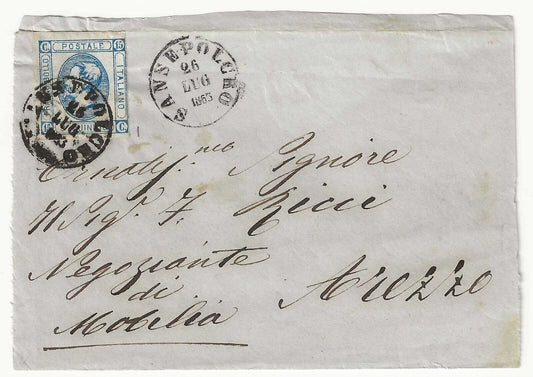 C. 15 POSTALE 15
FRANCO BOLLO
ITALIANO
SANSEPOLCRO
26
LUG
1863
SANSEPOLCRO
26
LUG
Ornatis.mo Signore
Il Sig.r F. Ricci
Negoziante
di
Mobilia
Arezzo